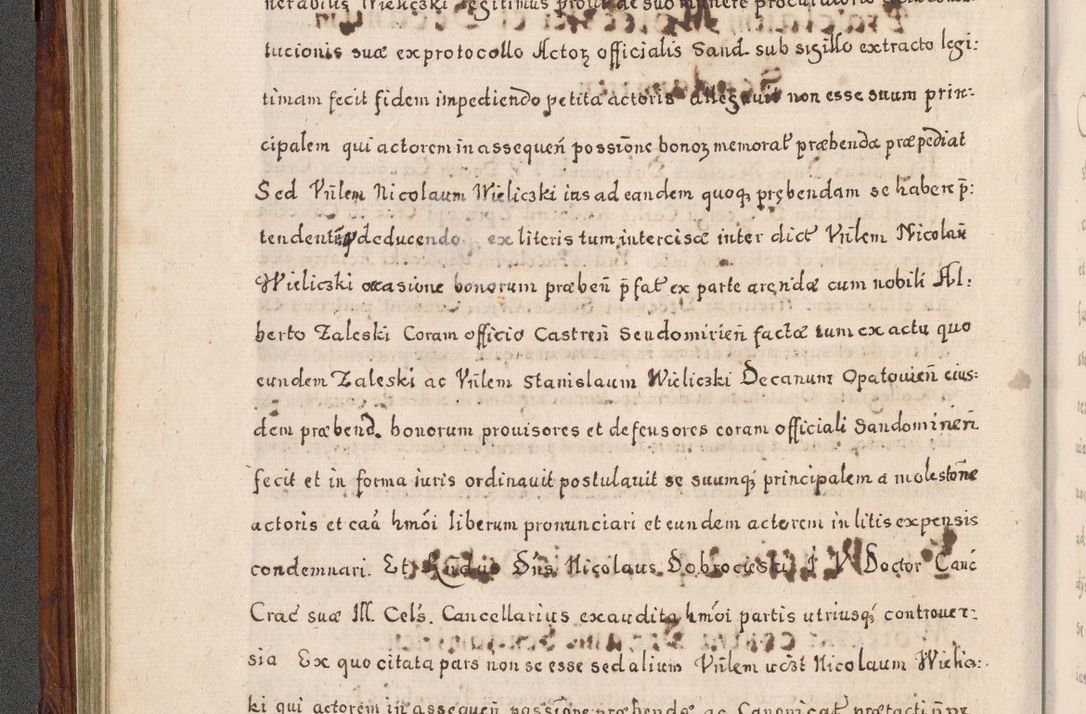 nerabilis Wieliczki legitimus prout de suo munere procuratorio
tucionis suæ ex protocollo Actoꝝ officialis Sand. sub sigillo extracto legi:
timam fecit fidem impediendo petita actoris allegauit non esse suum prin:
cipalem qui actorem in assequeñ possiōne bonoꝝ memorat̃ præbendæ præpediat
Sed Vñlem Nicolaum Wieliczki ius ad eandem quoqꝫ prębendam se habere p̃:
tendentem deducendo ex literis tum intercisæ inter dict Vñlem Nicolaū
Wieliczki occasione bonorum præbeñ p̃fat̃ ex parte arendæ cum nobili Al:
berto Zaleski Coram officio Castreñ Sendomirieñ factæ tum ex actu quo
eundem Zaleski ac Vñlem Stanislaum Wieliczki Decanum Opatouieñ eius:
dem præbend. bonorum prouisores et defensores coram officiali Sandomirieñ
fecit et in forma iuris ordinauit postulauit se suumqꝫ principalem a molestōne
actoris et caã hmõi liberum pronunciari et eundem actorem in litis expensis
condemnari. Et Rñdus Dñs Nicolaus Dobrocieski I V Doctor Canc̃
Crac̃ suæ Ill. Cels. Cancellarius exaudita hmõi partis utriusqꝫ controuer:
sia Ex quo citata pars non se esse sed alium Vñlem ucꝫt Nicolaum Wielic:
ki qui actorem in assequeñ possiōne præbendæ ac Canonicat̃ prætacti